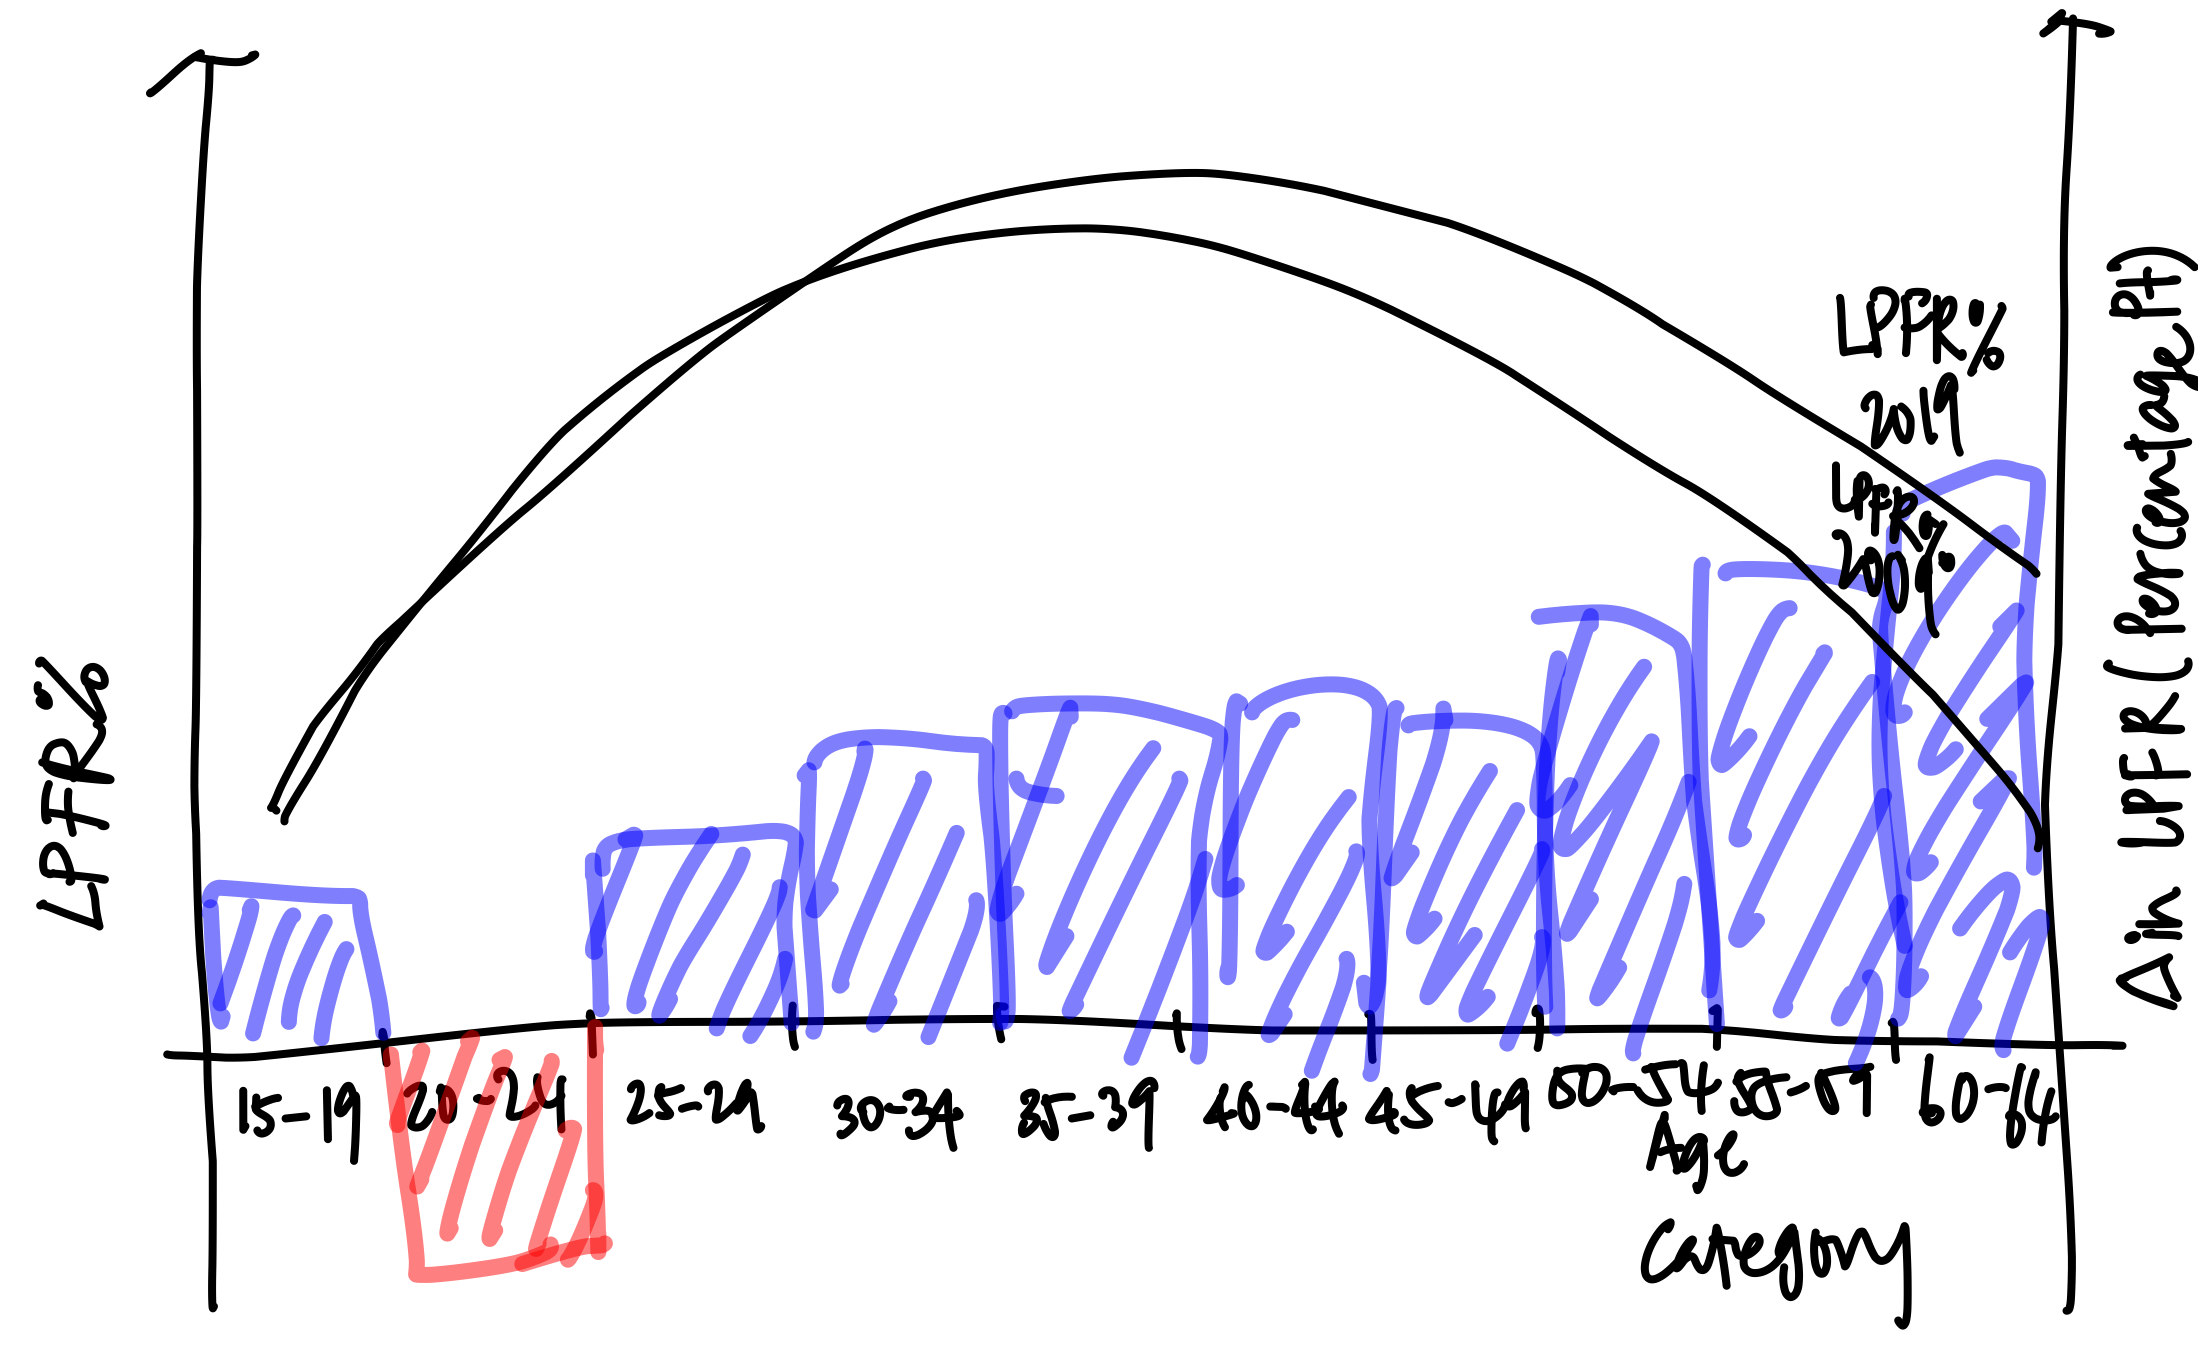 LPFR%
LPFR%
2019
LPFR%
2009
Δ in LPFR (Percentage Pt)
15-19 20-24 25-29 30-34 35-39 40-44 45-49 50-54 55-59 60-64
Age
Category